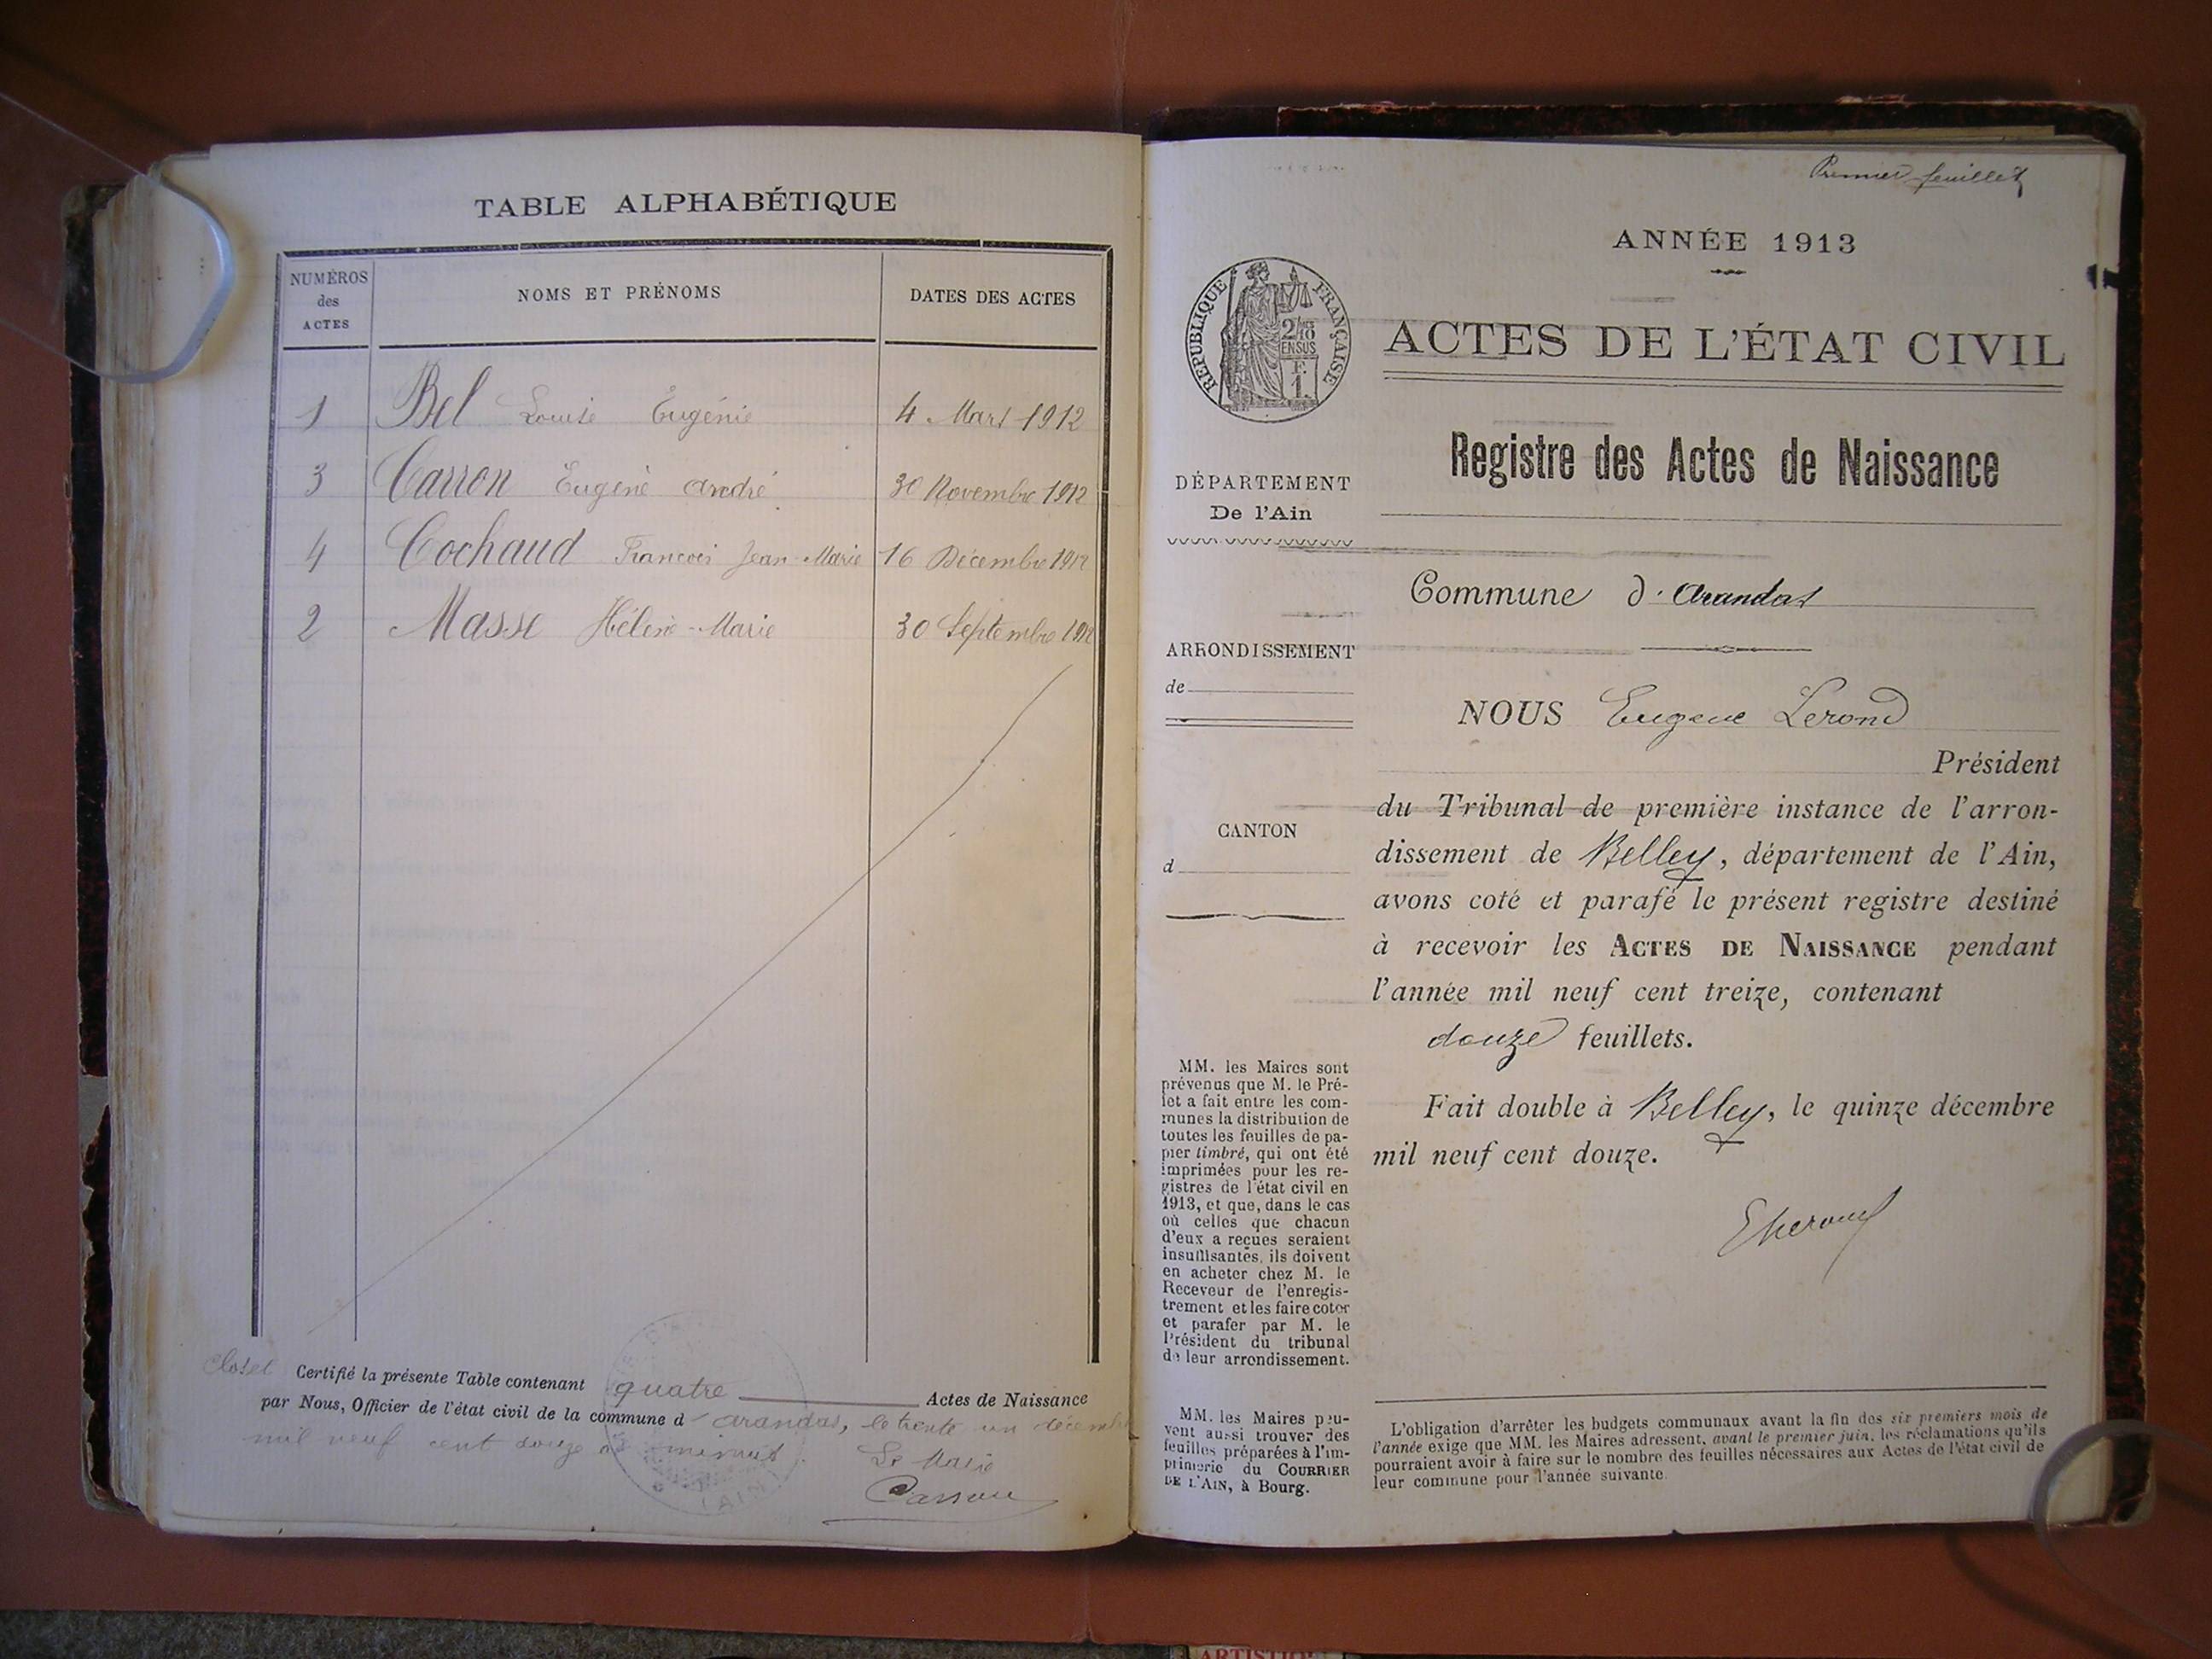 TABLE ALPHABÉTIQUE
NUMÉROS des ACTES
NOMS ET PRÉNOMS
DATES DES ACTES
1 Bel Louise Eugénie 4 Mars 1912
3 Carron Eugène André 30 Novembre 1912
4 Cochaud François Jean-Marie 16 Décembre 1912
2 Masse Hélène-Marie 30 Septembre 1912
Certifié la présente Table contenant quatre Actes de Naissance
par Nous, Officier de l'état civil de la commune d'Arandas, le trente un décembre
mil neuf cent douze à minuit.
Le Maire
Carron
Premier feuillet
ANNÉE 1913
RÉPUBLIQUE FRANÇAISE
2/10 EN SUS
F. 1.
ACTES DE L'ÉTAT CIVIL
Registre des Actes de Naissance
DÉPARTEMENT
De l'Ain
Commune d'Arandas
ARRONDISSEMENT
de
CANTON
d
NOUS Eugene Lerond
Président
du Tribunal de première instance de l'arron-
dissement de Belley, département de l'Ain,
avons coté et parafé le présent registre destiné
à recevoir les ACTES DE NAISSANCE pendant
l'année mil neuf cent treize, contenant
douze feuillets.
Fait double à Belley, le quinze décembre
mil neuf cent douze.
MM. les Maires sont
prévenus que M. le Pré-
fet a fait entre les com-
munes la distribution de
toutes les feuilles de pa-
pier timbré, qui ont été
imprimées pour les re-
gistres de l'état civil en
1913, et que, dans le cas
où celles que chacun
d'eux a reçues seraient
insuffisantes, ils doivent
en acheter chez M. le
Receveur de l'enregis-
trement et les faire coter
et parafer par M. le
Président du tribunal
de leur arrondissement.
MM. les Maires peu-
vent aussi trouver des
feuilles préparées à l'im-
primerie du COURRIER
DE L'AIN, à Bourg.
L'obligation d'arrêter les budgets communaux avant la fin des six premiers mois de
l'année exige que MM. les Maires adressent, avant le premier juin, les réclamations qu'ils
pourraient avoir à faire sur le nombre des feuilles nécessaires aux Actes de l'état civil de
leur commune pour l'année suivante.